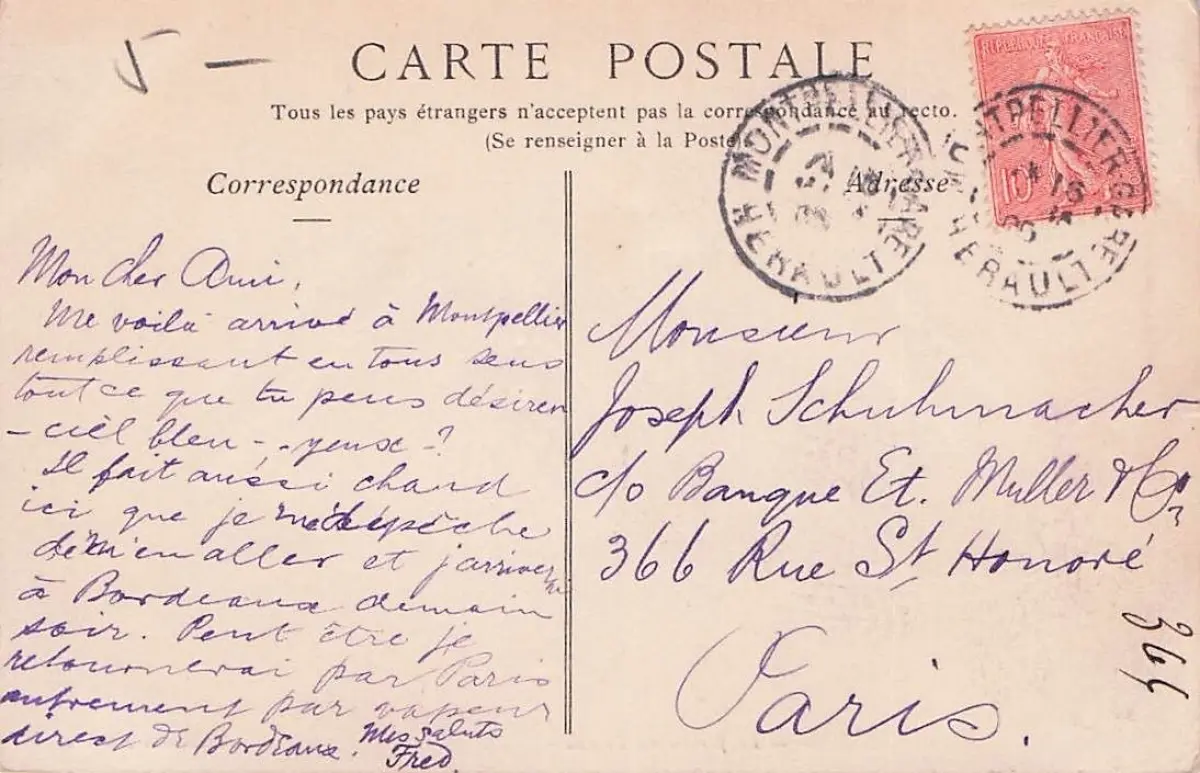 5 -
CARTE POSTALE
Tous les pays étrangers n'acceptent pas la correspondance au recto.
(Se renseigner à la Poste)
Correspondance
Adresse
RÉPUBLIQUE FRANÇAISE
10
MONTPELLIER GARE
HERAULT
MONTPELLIER GARE
HERAULT
Mon cher Ami,
Me voilà arrivé à Montpellier
remplissant en tous sens
tout ce que tu peus désirer
- ciel bleu - - yeux - ?
Il fait aussi chaud
ici que je me dépêche
de m'en aller et j'arriverai
à Bordeaux demain
soir. Peut être je
retournerai par Paris
autrement par vapeur
direct de Bordeaux. Mes saluts
Fred.
Monsieur
Joseph Schuhmacher
c/o Banque Et. Muller & Co
366 Rue St Honoré
Paris.
364